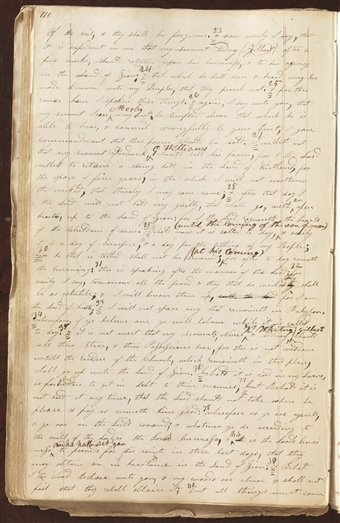 110
Of the evil, & they shall be forgiven. 23 & now verily I say, that
it is expedient in me that my Servant Sidney (Gilbert) after a
few weeks, shall return upon his business, & to his agency
in the land of Zion; 24 & that which he hath seen & heard may be
made known unto my Disciples, that they perish not. 25 & for this
cause have I spoken these things. 26 & again, I say unto you, that
my servant Isaac Morley may not be tempted above that which he is
able to bear, & counsel wrongfully to your hurt, I gave
commandment that this farm should be sold. 27 I willeth not
that my servant Frederick G Williams should sell his farm, for I the Lord
willeth to retain a strong hold in the land of Kirtland, for
the space of five years, in the which I will not overthrow
the wicked, that thereby I may save some; 28 & after that day I
the Lord will not hold any guilty, that shall go, with open
hearts, up to the land of Zion: for I the Lord requireth the hearts
of the children of men. 29 Behold now it is called to day, (until the coming of the son of man) & verily
it is a day of sacrifice, & a day for the tithing of my People;
30 for he that is tithed shall not be burned (at his coming); for after to day cometh
the burning: 31 this is speaking after the manner of the Lord; for
verily I say tomorrow all the proud & they that do wickedly shall
be as stubble; & I will burn them up, for I am
the Lord of hosts; & I will not spare any that remaineth in Babylon.
Wherefore if ye believe me, ye will labour while it is called
to day. & it is not meet that my servants, N K Whitney & Sidney Gilbert should
sell their store, & their Possessions here, for this is not wisdom
until the residue of the Church, which remaineth in this place,
shall go up unto the land of Zion. Behold it is said in my Laws,
or forbidden to get in debt to thine enemies; but Behold it is
not said at any time, that the Lord should not take when he
please & pay as seemeth him good: wherefore as ye are agents,
& ye are on the Lord's errand; & whatever ye do according to
the will of the Lord is the Lord's business, & it is the Lord's busi-
ness to provide for his saints in these last days, that they
may obtain an inheritance in the land of Zion: & Behold
I the Lord declare unto you, & my words are sure & shall not
fail that they shall obtain it; but all things must come